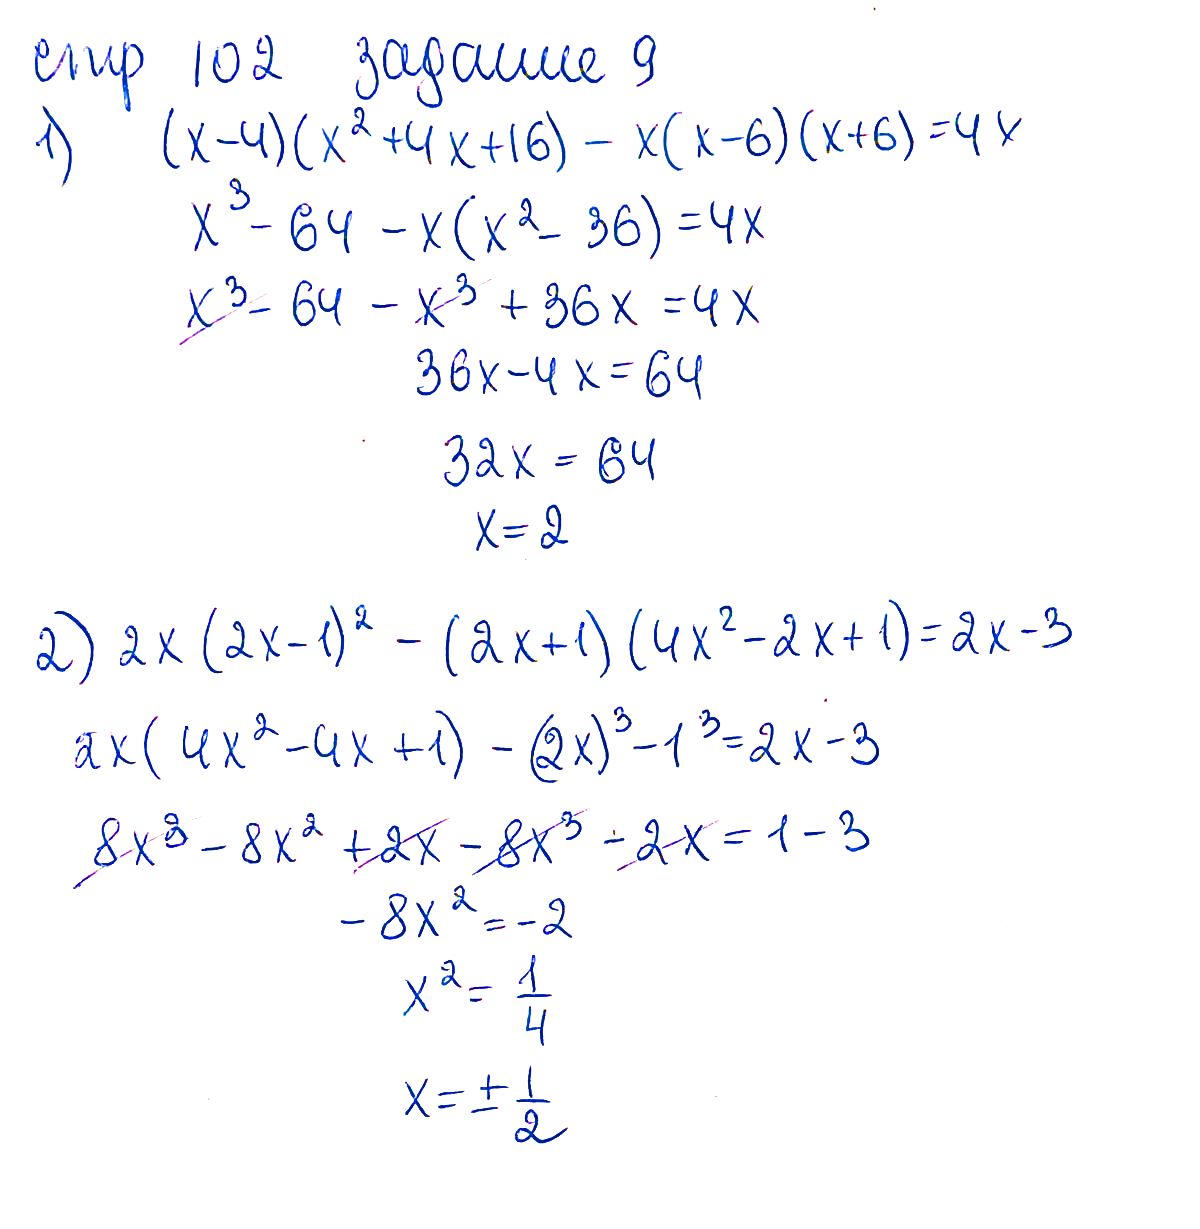 стр 102 задание 9
1) (x-4)(x²+4x+16) - x(x-6)(x+6)=4x
x³ - 64 - x(x² - 36) = 4x
x³ - 64 - x³ + 36x = 4x
36x - 4x = 64
32x = 64
x = 2
2) 2x(2x-1)² - (2x+1)(4x²-2x+1)=2x-3
2x(4x²-4x+1) - (2x)³-1³=2x-3
8x³ - 8x² + 2x - 8x³ - 2x = 1 - 3
-8x² = -2
x² = 1/4
x = ± 1/2